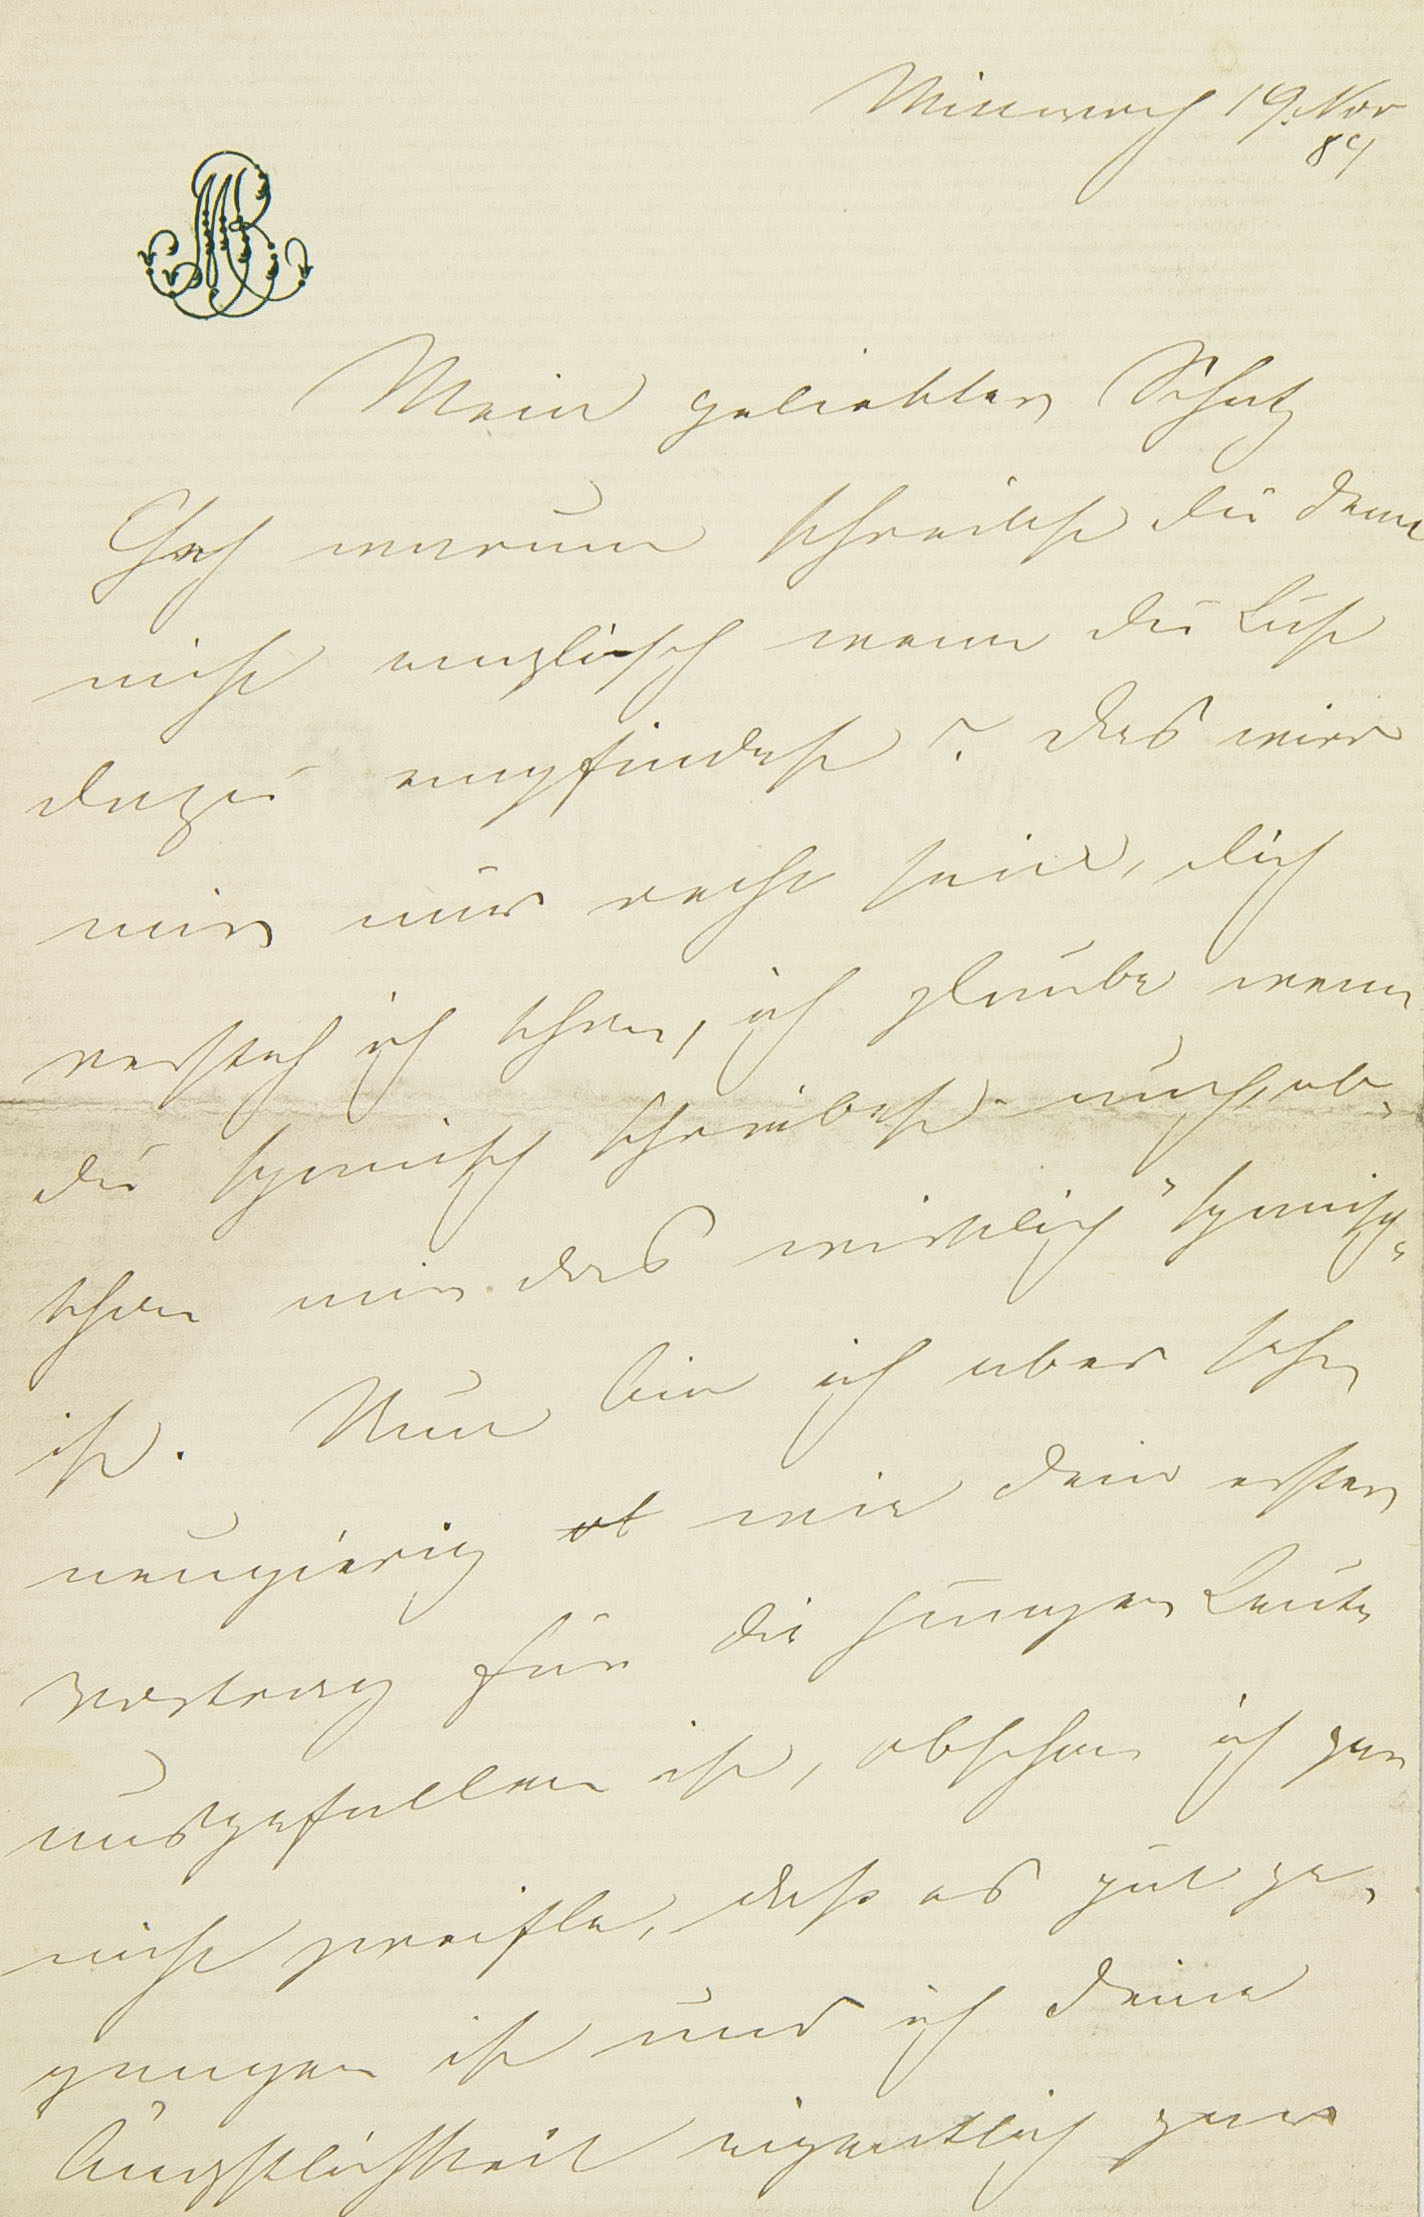 Mittwoch 19. Nov
84
MB
Mein geliebter Schatz
Geh warum schreibst du denn
nicht englisch wenn du Lust
dazu empfindest? das wird
mir nur recht sein, dich
versteh ich schon, ich glaube wenn
du spanisch schreibst auch, ob-
schon mir das wirklich "spanisch"
ist. Nun bin ich aber sehr
neugierig ob wie dein erster
Vortrag für die jungen Leute
ausgefallen ist, obschon ich gar
nicht zweifle, daß es gut ge-
gangen ist und ich deine
Ängstlichkeit eigentlich gar